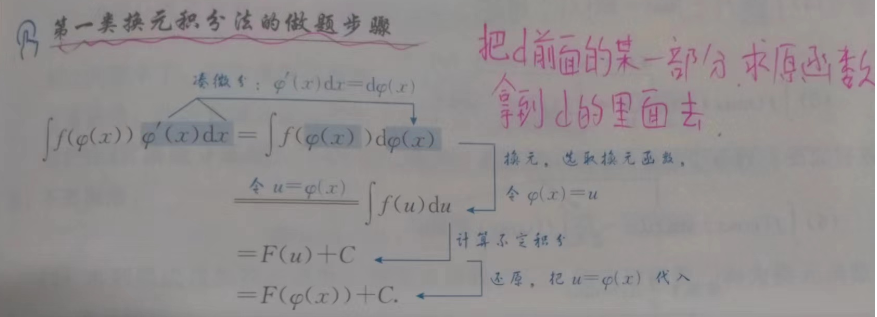 第一类换元积分法的做题步骤
把d前面的某一部分求原函数
拿到d的里面去
凑微分：φ′(x)dx=dφ(x)
∫f(φ(x))φ′(x)dx=∫f(φ(x))dφ(x)
换元，选取换元函数，
令φ(x)=u
令u=φ(x) ∫f(u)du
计算不定积分
=F(u)+C
还原，把u=φ(x)代入
=F(φ(x))+C.